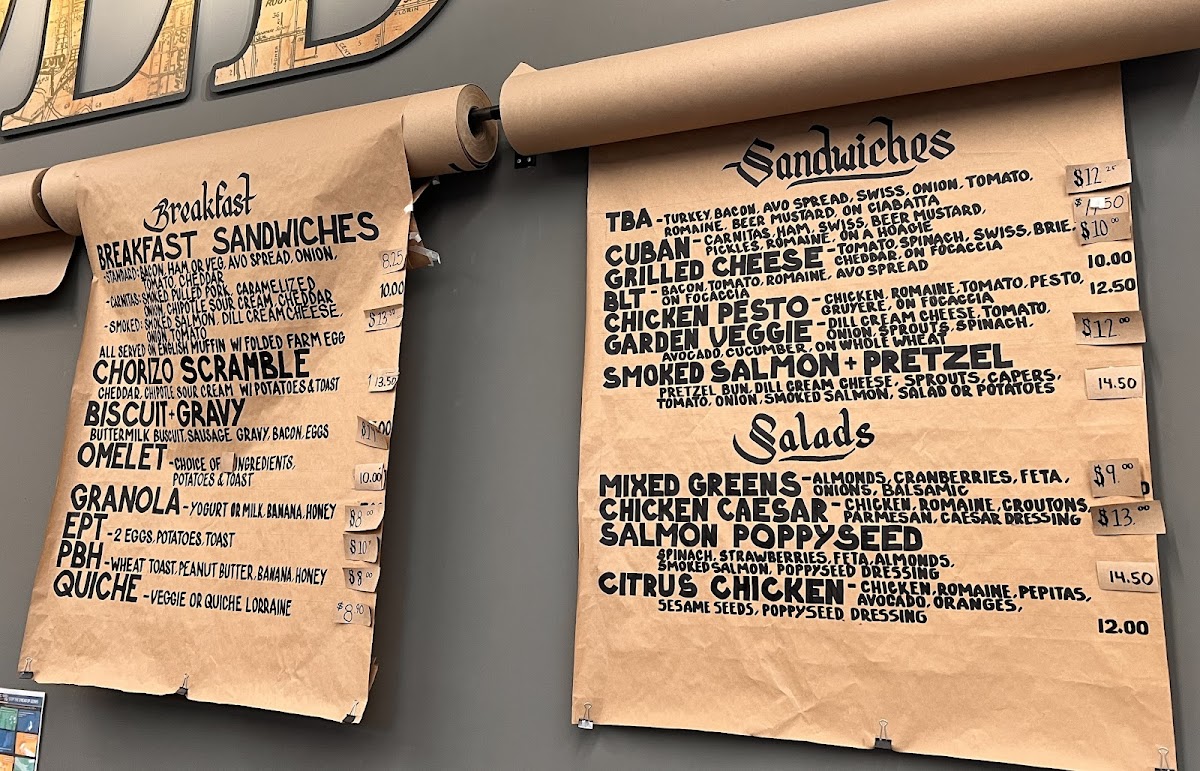 Breakfast
BREAKFAST SANDWICHES
-STANDARD: BACON, HAM OR VEG, AVO SPREAD, ONION, 8.25
TOMATO, CHEDDAR
-CARNITAS: SMOKED PULLED PORK, CARAMELIZED 10.00
ONION, CHIPOTLE SOUR CREAM, CHEDDAR
-SMOKED: SMOKED SALMON, DILL CREAM CHEESE,
ONION, TOMATO
ALL SERVED ON ENGLISH MUFFIN W/ FOLDED FARM EGG
CHORIZO SCRAMBLE
CHEDDAR, CHIPOTLE SOUR CREAM W/ POTATOES & TOAST 13.50
BISCUIT + GRAVY
BUTTERMILK BISCUIT, SAUSAGE GRAVY, BACON, EGGS
OMELET - CHOICE OF INGREDIENTS, 10.00
POTATOES & TOAST
GRANOLA - YOGURT OR MILK, BANANA, HONEY $8.00
EPT - 2 EGGS, POTATOES, TOAST
PBH - WHEAT TOAST, PEANUT BUTTER, BANANA, HONEY $8.00
QUICHE - VEGGIE OR QUICHE LORRAINE
Sandwiches
TBA - TURKEY, BACON, AVO SPREAD, SWISS, ONION, TOMATO, $12.25
ROMAINE, BEER MUSTARD, ON CIABATTA
CUBAN - CARNITAS, HAM, SWISS, BEER MUSTARD,
PICKLES, ROMAINE, ON A HOAGIE
GRILLED CHEESE - TOMATO, SPINACH, SWISS, BRIE, $10.00
CHEDDAR, ON FOCACCIA
BLT - BACON, TOMATO, ROMAINE, AVO SPREAD 10.00
ON FOCACCIA
CHICKEN PESTO - CHICKEN, ROMAINE, TOMATO, PESTO, 12.50
GRUYERE, ON FOCACCIA
GARDEN VEGGIE - DILL CREAM CHEESE, TOMATO, $12.00
ONION, SPROUTS, SPINACH,
AVOCADO, CUCUMBER, ON WHOLE WHEAT
SMOKED SALMON + PRETZEL
PRETZEL BUN, DILL CREAM CHEESE, SPROUTS, CAPERS, 14.50
TOMATO, ONION, SMOKED SALMON, SALAD OR POTATOES
Salads
MIXED GREENS - ALMONDS, CRANBERRIES, FETA, $9.00
ONIONS, BALSAMIC
CHICKEN CAESAR - CHICKEN, ROMAINE, CROUTONS, $13.00
PARMESAN, CAESAR DRESSING
SALMON POPPYSEED
SPINACH, STRAWBERRIES, FETA, ALMONDS, 14.50
SMOKED SALMON, POPPYSEED DRESSING
CITRUS CHICKEN - CHICKEN, ROMAINE, PEPITAS,
AVOCADO, ORANGES,
SESAME SEEDS, POPPYSEED DRESSING 12.00